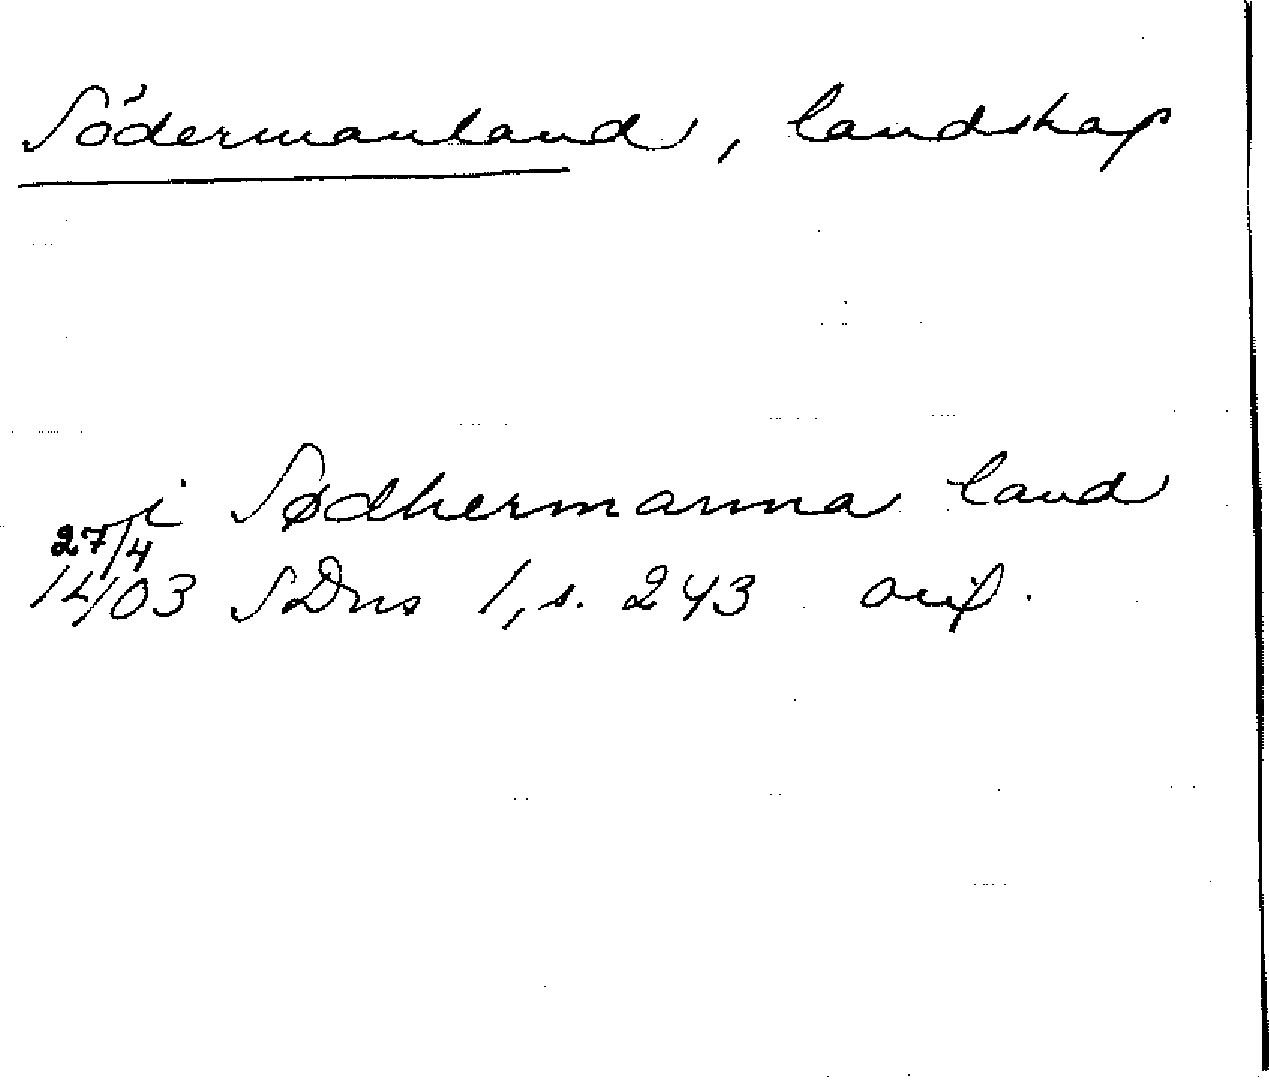 Södermanland, landskap
i Sødhermanna land
27/4
1403 SDns 1, s. 243 orig.